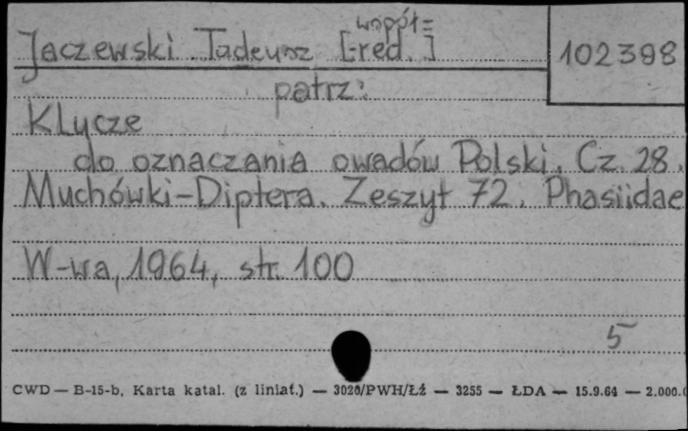 współ=
Jaczewski Tadeusz [-red.]
102398
patrz:
Klucze
do oznaczania owadów Polski. Cz. 28.
Muchówki-Diptera. Zeszyt 72. Phasiidae
W-wa, 1964, str. 100
5
CWD — B-15-b, Karta katal. (z liniat.) — 3026/PWH/Łź — 3255 — ŁDA — 15.9.64 — 2.000.